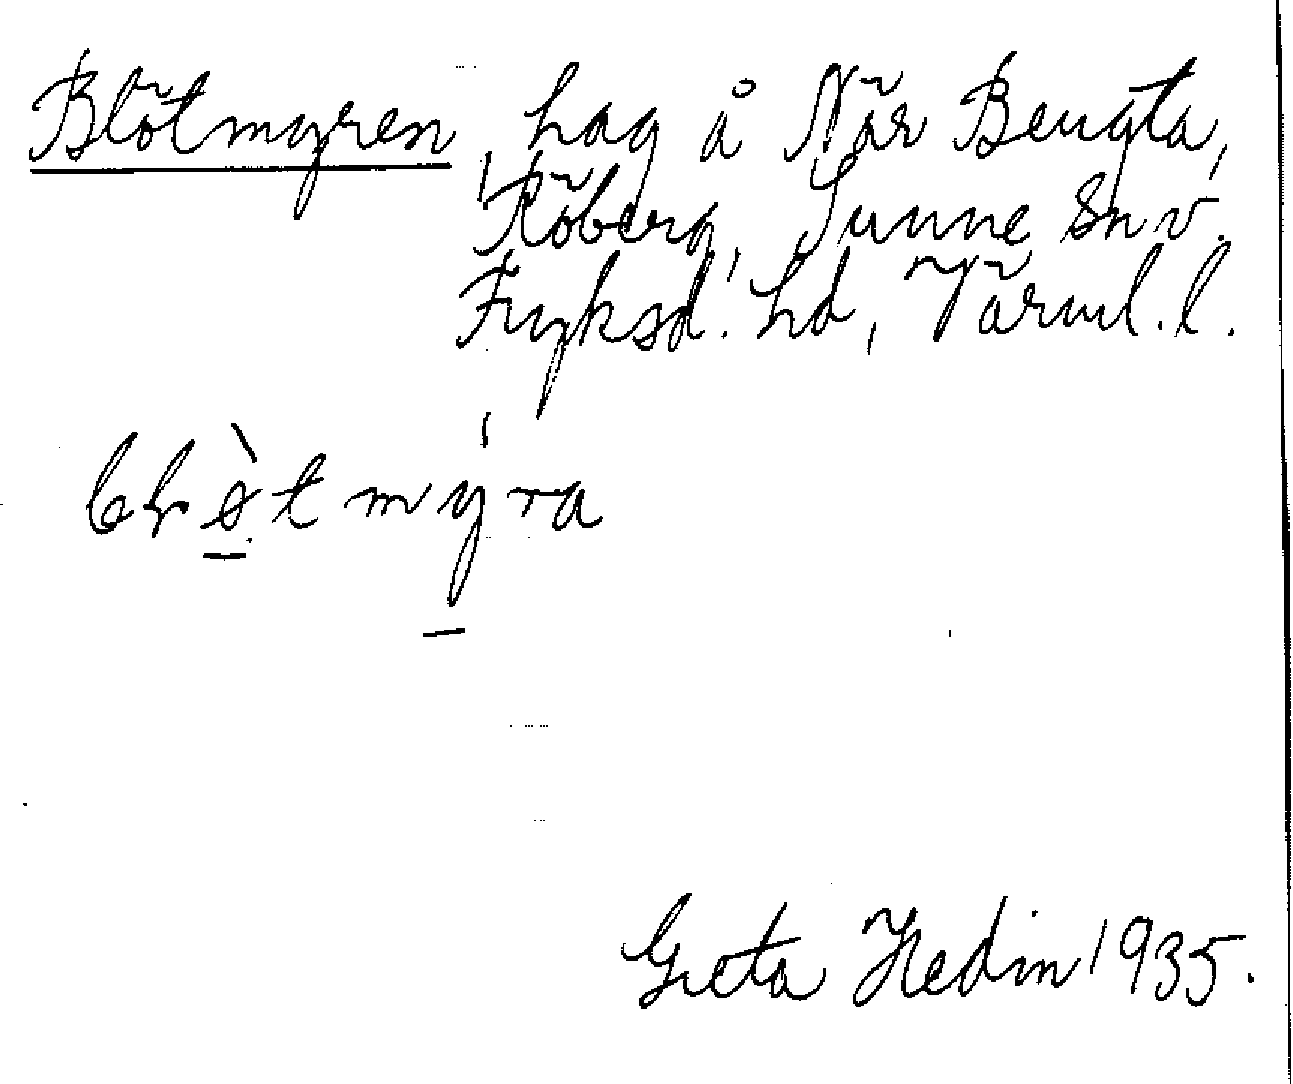 Blötmyren, hag å När Bengta,
Röberg, Sunne sn v.
Fryksd. hd, Värml. l.
Greta Hedin 1935.